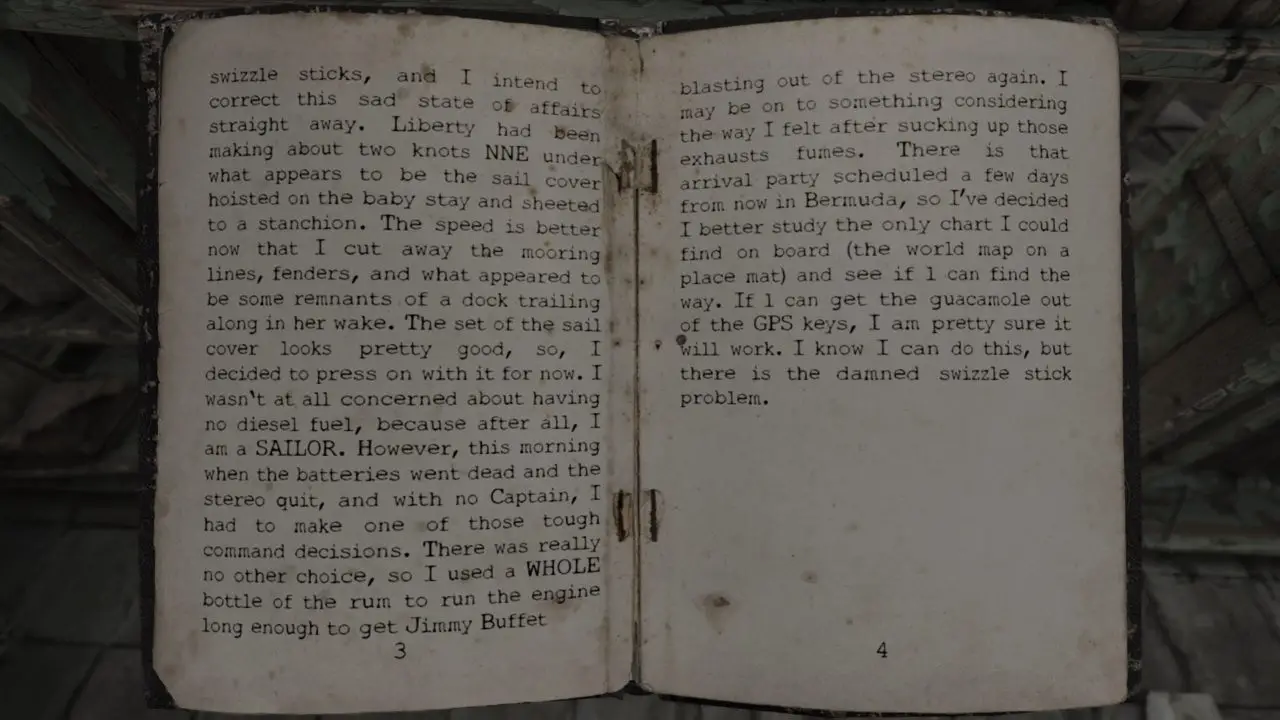 swizzle sticks, and I intend to
correct this sad state of affairs
straight away. Liberty had been
making about two knots NNE under
what appears to be the sail cover
hoisted on the baby stay and sheeted
to a stanchion. The speed is better
now that I cut away the mooring
lines, fenders, and what appeared to
be some remnants of a dock trailing
along in her wake. The set of the sail
cover looks pretty good, so, I
decided to press on with it for now. I
wasn't at all concerned about having
no diesel fuel, because after all, I
am a SAILOR. However, this morning
when the batteries went dead and the
stereo quit, and with no Captain, I
had to make one of those tough
command decisions. There was really
no other choice, so I used a WHOLE
bottle of the rum to run the engine
long enough to get Jimmy Buffet
3
blasting out of the stereo again. I
may be on to something considering
the way I felt after sucking up those
exhausts fumes. There is that
arrival party scheduled a few days
from now in Bermuda, so I've decided
I better study the only chart I could
find on board (the world map on a
place mat) and see if l can find the
way. If l can get the guacamole out
of the GPS keys, I am pretty sure it
will work. I know I can do this, but
there is the damned swizzle stick
problem.
4